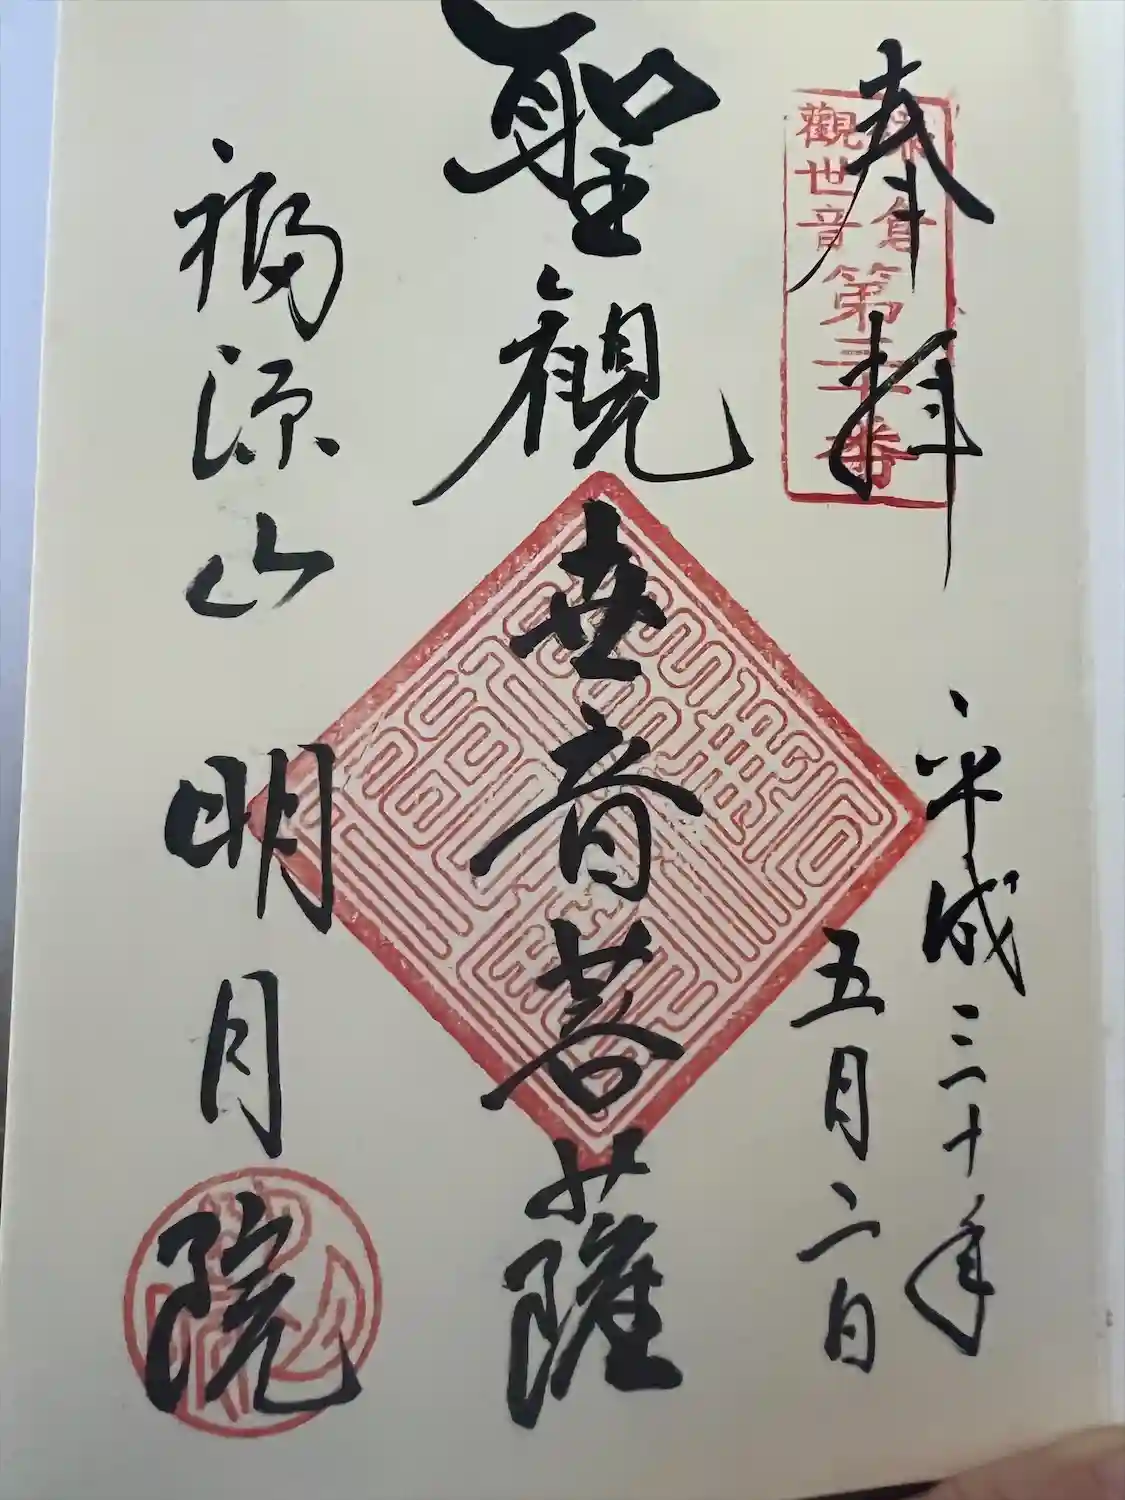 奉拝
鎌倉
觀世音
第三十番
平成三十年
五月二日
聖観世音菩薩
福源山
明月院